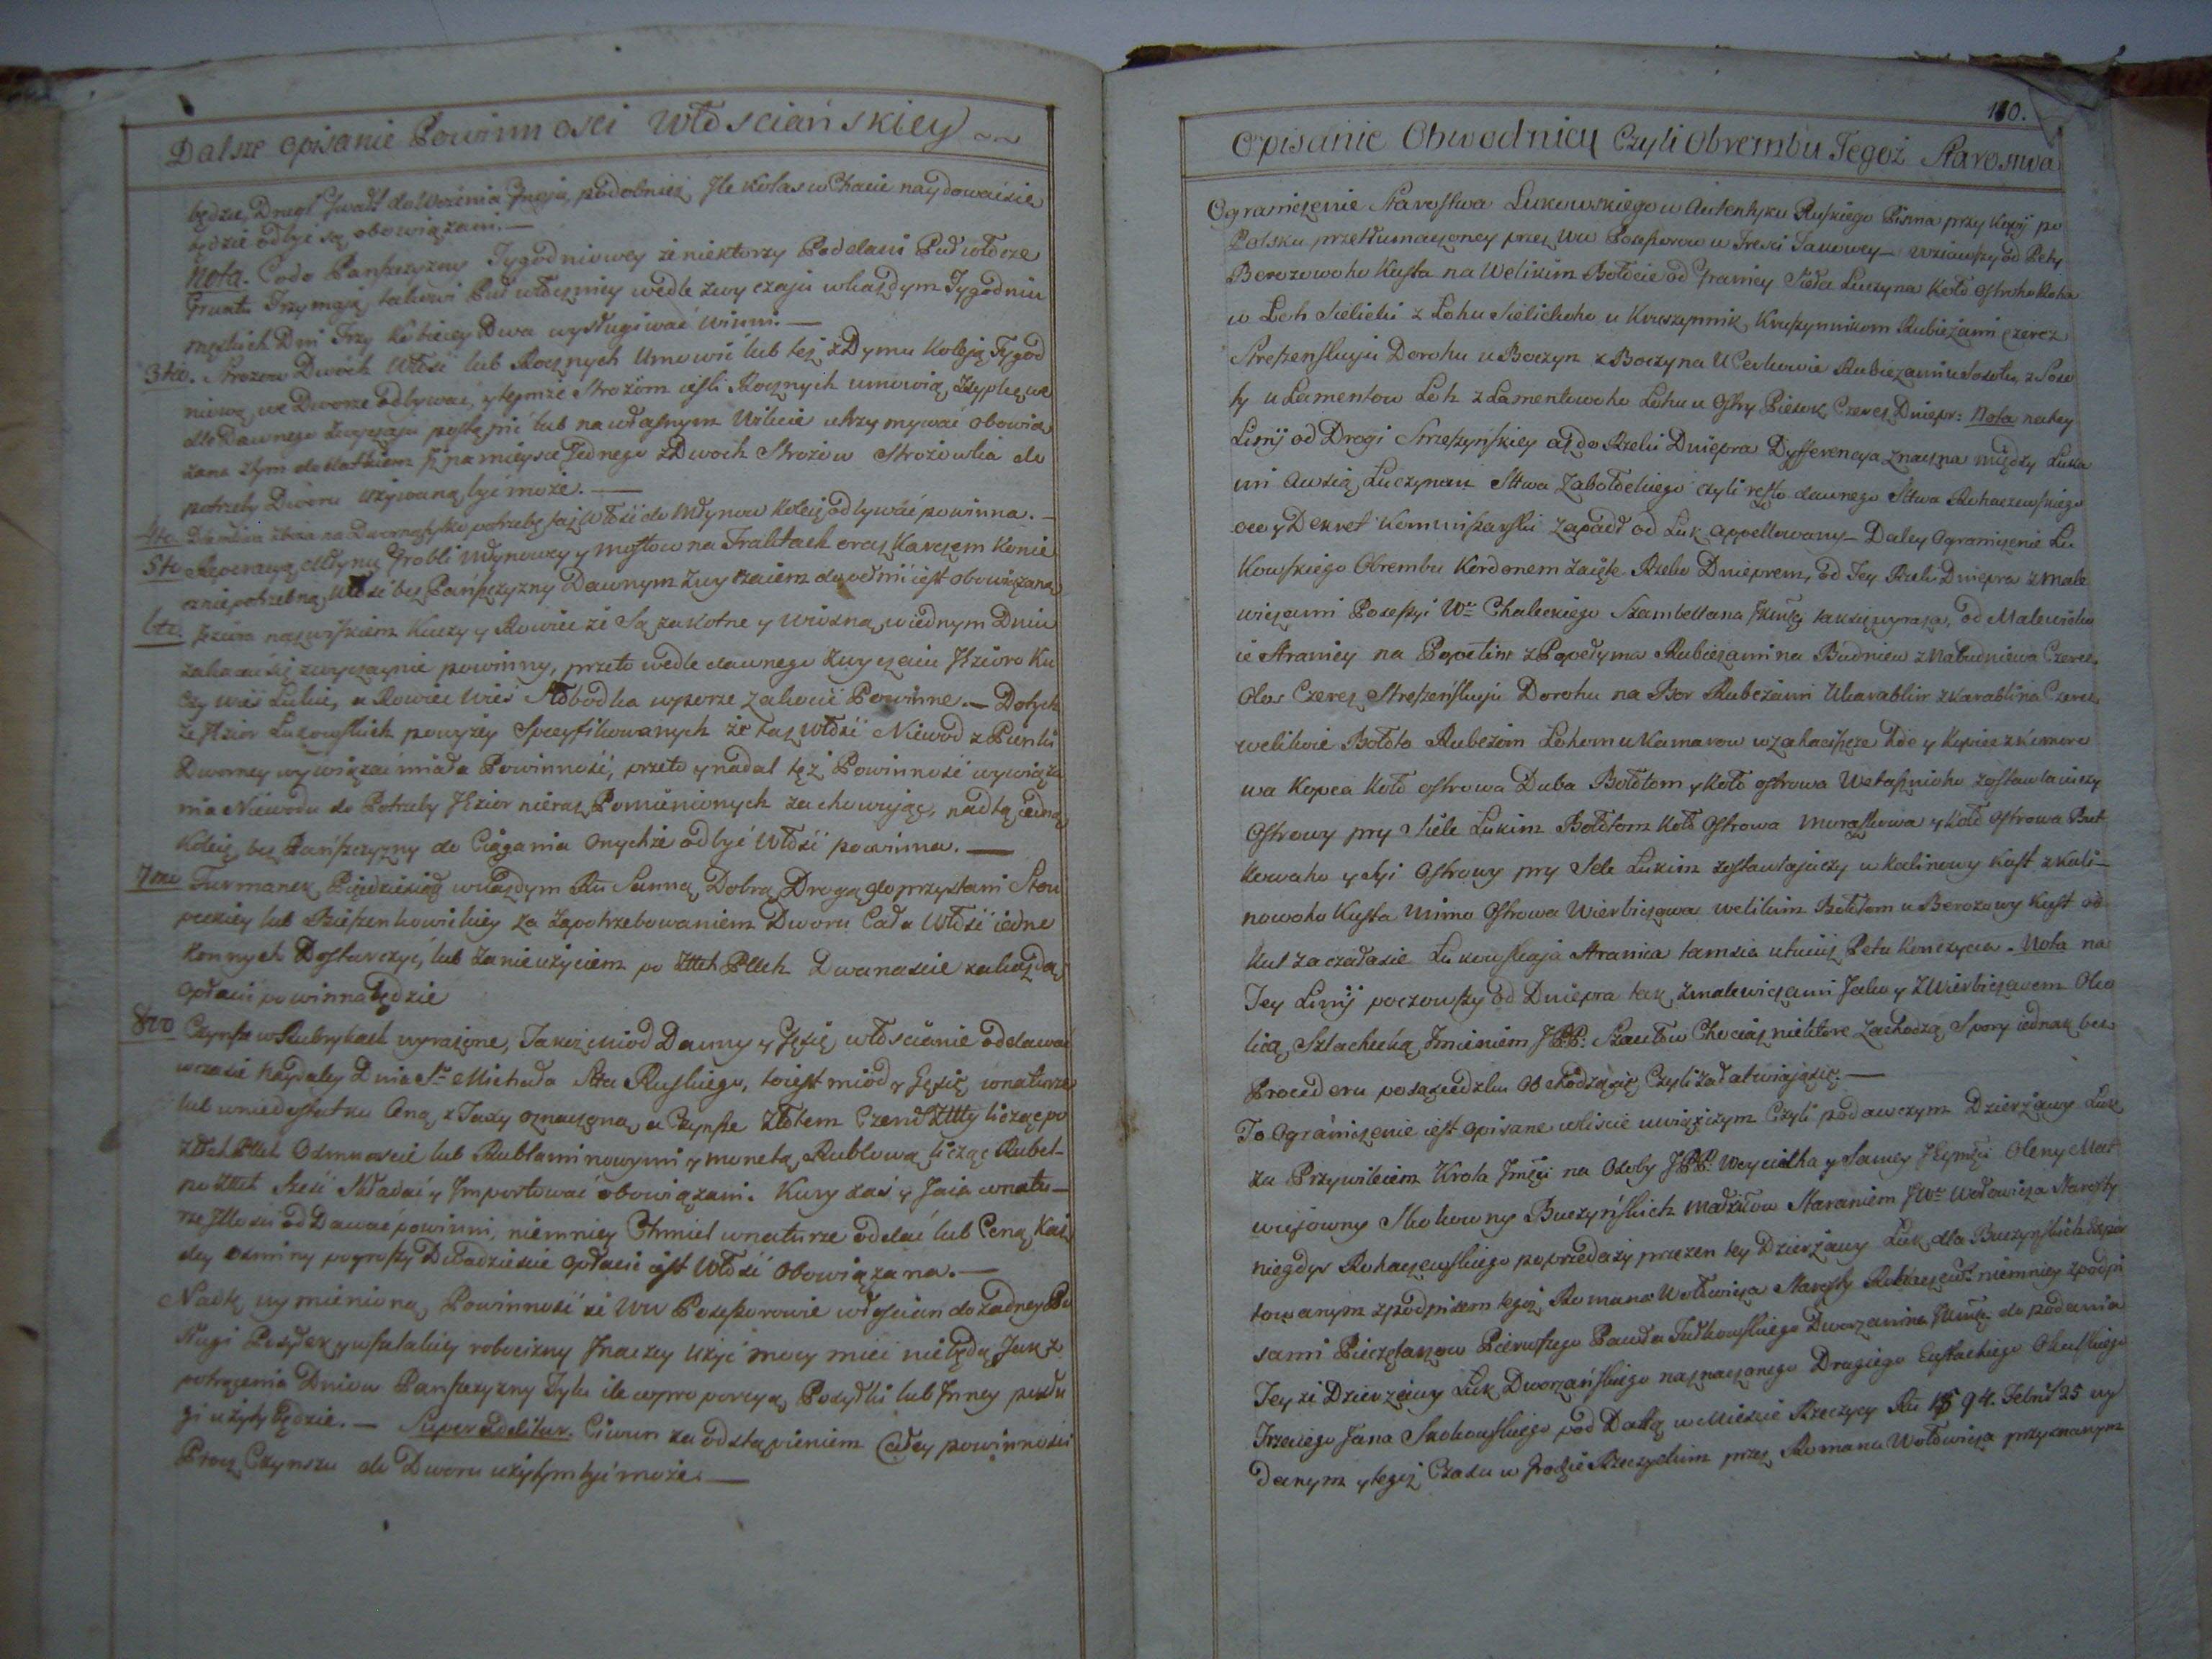 Dalsze opisanie Powinnosci Włosciańskiey
będzie, Drugi Gwałt do Wożenia podobnież Ile Kolas w Chacie naydowaćsię
będzie odbyć są obowiązani. —
Nota. Codo Panszczyzny Tygodniowey że niektorzy Poddani Puł włocze
Gruntu Trzymają, takowi Puł włoczniey wedle zwyczaju w każdym Tygodniu
męzkich Dni Trzy Kobiecey Dwa wysługiwać winni. —
3tio. Strozow Dwóch Włość lub Rocznych Umowić lub też z Dymu Koleją Tygod
niową, we Dworze odbywać, y tymże Strożom jeśli Rocznych umowią Zsypkę we
dle Dawnego zwyczaju postąpić lub na własnym Wikcie utrzymywać obowią
zana z tym dodatkiem iż na mieysce Jednego z Dwóch Strożow Strożowka do
potrzeby Dworu używaną być może. —
4to. zboża na potrzebę taż Włość do Młynow Koleią odbywać powinna. —
5to Reperacyą Młynu Grobli Młynowey y mostow na Traktach oraz Karczem Konie
cznie potrzebną, Włość bez Pańszczyzny Dawnym Zwyczaiem dopełnić iest obowiązana
6to. Jeziora nazwiskiem Kuczy y Rowiec że Są zakotne y wiosną, w iednym Dniu
zakacać się zwyczaynie powinny, przeto wedle dawnego zwyczaiu Jezioro Ku
czy wieś Lukie, a Rowiec Wieś Słobodka wporze zakocić Powinne. — Dotych
że Jezior Lukowskich powyżey Specyfikowanych że taż Włość Niewod z Pieńki
Dworney wywiązać miała Powinność, przeto y nadal też Powinność wywiąza
nia Niewodu do Potrzeby Jezior nieraz Pomienionych zachowując, nadtą iedną
Koleią bez Pańszczyzny do Ciągania Onychże odbyć Włość powinna. —
7mo Furmanek Pięćdziesiąt w każdym Ru Sanną Dobrą Drogą do przystani Stou
peckiey lub za zapotrzebowaniem Dworu Cała Włość iedno
Konnych Dostarczyć, lub Zanieużyciem po Złłch Pllch Dwanascie za każdą
opłacić powinna będzie
8vo Czynsze w Rubrykach wyrażone, Jakoż Miod Danny y Gęsię włoscianie oddawać
w czasie naydaley Dnia Sgo Michała Stta Ruskiego, to iest miod y Gęsię w naturze
lub w niedostatku Ceną z Taxy oznaczoną, a Czynsze Złotem Czerwł Złłty licząc po
Złłch Pllch Osmnaście lub Rublami nowymi y monetą Rublową licząc Rubel-
po Złłch Szesć Składać y Importować obowiązani. Kury zaś y Jaia w natu-
rze Włość oddawać powinni, niemniey Chmiel w naturze oddać lub Ceną Każ
dey osminy pogroszy Dwadziescie opłacić iest Włość Obowiązana. —
Nadtę wymienioną Powinność że WW Posessorowie włoscian do żadney Po
sługi Posyłek y wszelakiey robocizny Inaczey użyć mocy mieć niebędą, Jak z
potrącenia Dniow Panszczyzny Tyle ile wproporcyą Posyłki lub Inney posłu
gi użyty będzie. — Super additur. Ciwun za odstąpieniem Całey powinności
Procz Czynszu do Dworu użytym być może. —
110.
Opisanie Obwodnicy Czyli Obrembu Tegoż Starostwa
Ograniczenie Starostwa Lukowskiego w Autentyku Ruskiego Pisma przy Kopij po
Polsku przetłumaczoney przez WW Posessorow w Tresci Takowey — Wziąwszy od Pety
Berozowoho Kusta na Welikim Bołocie od Granicy Sieła Luczyna Koło Ostroho Roha
w Loh Sielicki z Lohu Sielickoho u Kruszynnik, Kruszynnikom Rubieżami czerez
Streszenskuju Dorohu u Boczyn z Boczyna U Cerkowie Rubieżami u Sosoty z Soso
ty u Lamentow Loh z Lamentowoho Lohu u Ostry Piesok Czerez Dniepr: Nota na tey
Linij od Drogi Streszyńskiey aż do Rzeki Dniepra Dyfferencya znaczna między Luka
mi a wsią Luczynem Sttwa Zabołockiego czyli resto dawnego Sttwa Rohaczewskiego
oco y Dekret Kommissarski zapadł od Luk appellowany — Daley Ograniczenie Lu
kowskiego Obrembu Kordonem zaięte Rzeka Dnieprem, od Tey Rzeki Dniepra z Male
wiczami Possesyi Wo Chaleckiego Szambellana Jkmci tak się wyraża, od Malewicko
ie Hranicy na Popetin z Popedyma Rubieżami na Budniew z Nabudniewa Czerez
Olos Czerez Streszeńskuju Dorohu na Bor Rubeżami Ukarablin z Karablina Czerez
welikoie Bołoto Rubeżom Lohom u Kamarow w zakaciszcze hde y Kopiec z Kamaro
wa Kopca Koło ostrowa Duba Bołotom y Koło ostrowa zostawlaiuczy
Ostrowy pry Siele Lukim Bołotom Koło Ostrowa Muraszkowa y Koło Ostrowa But
kowaho y tyi Ostrowy pry Sele Lukim zostawlaiuczy u Kalinowy Kust z Kali-
nowoho Kusta Mimo Ostrowa Wierbiczowa welikim Bołotom u Berozowy Kust od
kul zaczałasie Lukowskaja Hranica tamsia y tutiż Peta Konczycie. Nota na
Tey Linij poczowszy od Dniepra tak z malewiczami Jako y z Wierbiczowem Oko
licą Szlachecką Imieniem JPP: Szantow Chociaż niektore zachodzą Spory iednak bez
Procederu po sąsiedzku Obchodzą się Czyli załatwiają się. —
To Ograniczenie iest Opisane w liscie uwiążczym Czyli podawczym Dzierżawy Luk
za Przywileiem Krola Jmci na Osoby JPP. Woyciecha y Samey Jeymci Oleny Mar
wiżowny Skokowny Buczyńskich małżakow Staraniem JWo Wołowicza Starosty
niegdys Rohaczewskiego poprzedaży przezen tey Dzierżawy Luk dla Buczyńskich
towanym z podpisem tegoż Romana Wołowicza Starosty Rohaczewo niemniey z podpi
sami Pieczętarzow Pierwszego Pawła Dworzanina Jkmci do podania
Teyże Dzierżawy Luk Dworzańskiego naznaczonego Drugiego Eustachiego
Trzeciego Jana Skokowskiego pod Datą w Miescie Rzeczycy Ru 1594. Febru 25 wy
danym y tegoż Czasu w Grodzie Rzeczyckim przez Romana Wołowicza przyznanym